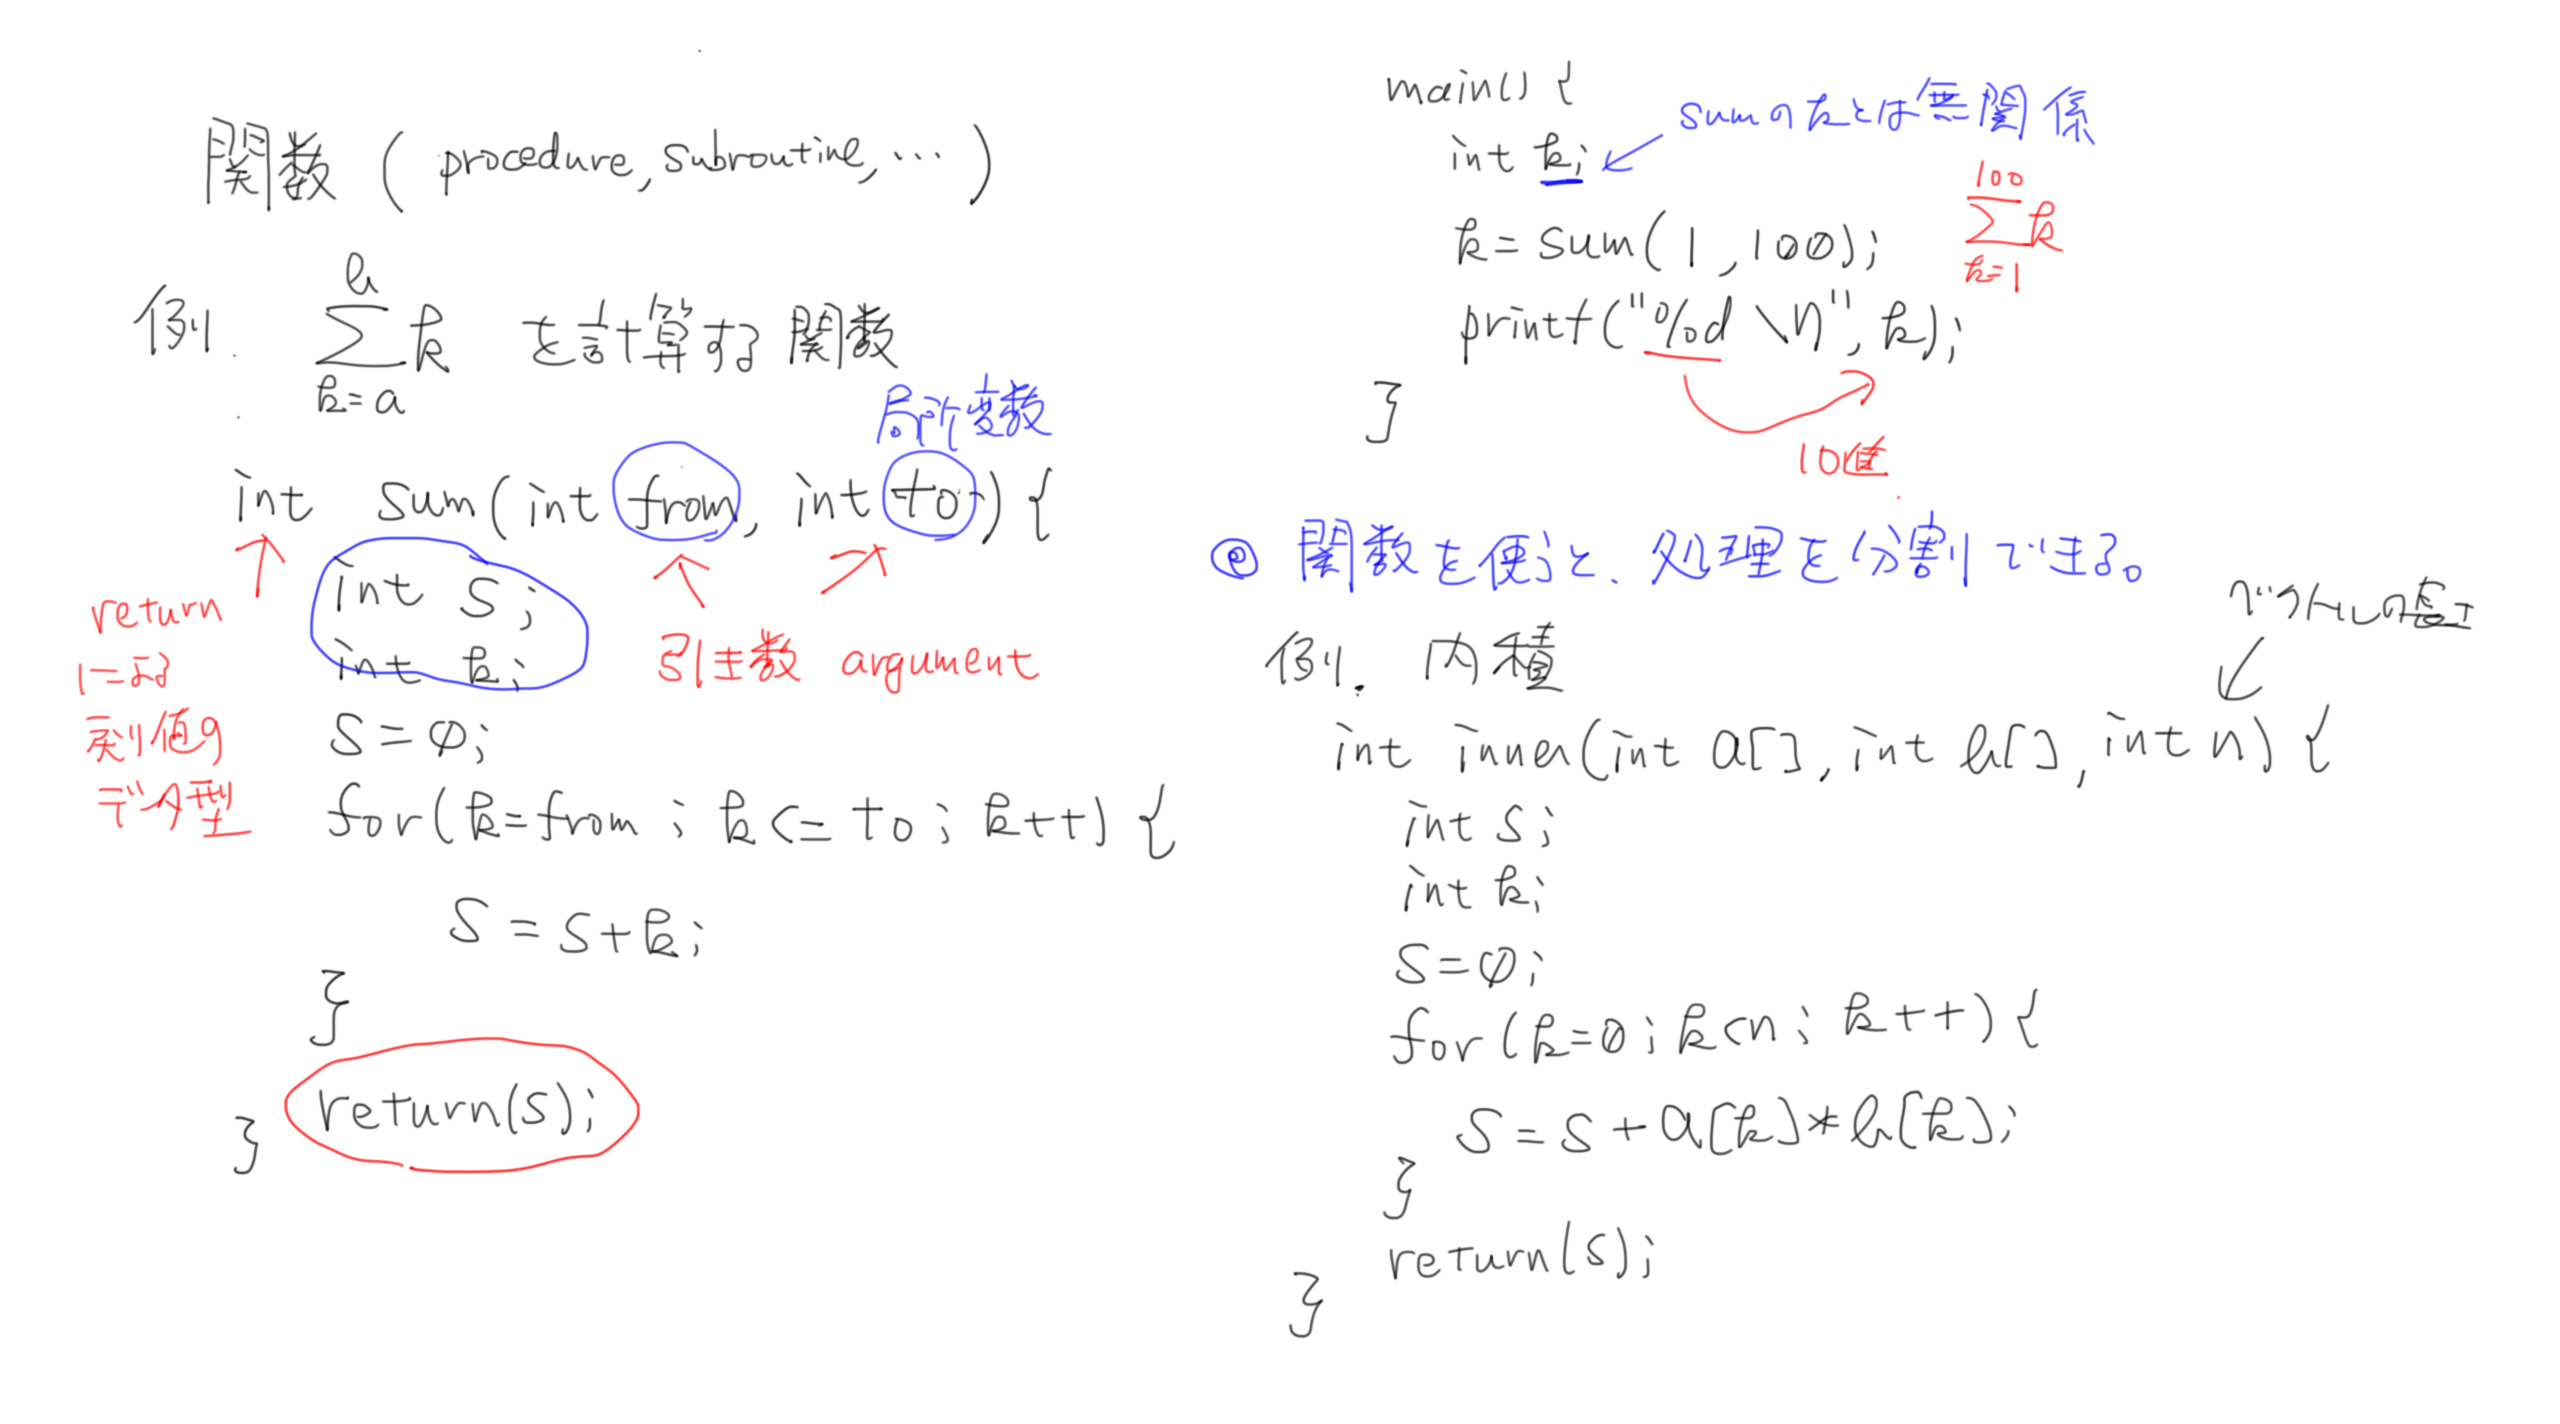 関数 ( procedure, subroutine, … )
例. b
Σ k を計算する関数
k=a
局所変数
int sum(int from, int to) {
int s;
int k;
return
による
戻り値の
データ型
引き数 argument
s = 0;
for(k=from ; k <= to ; k++) {
s = s+k;
}
return(s);
}
main() {
int k;
sumのkとは無関係
k = sum(1, 100);
100
Σ k
k=1
printf("%d \n", k);
}
10進
◎ 関数を使うと、処理を分割できる。
例. 内積
ベクトルの長さ
int inner(int a[], int b[], int n) {
int s;
int k;
s=0;
for(k=0; k<n; k++) {
s = s + a[k]*b[k];
}
return(s);
}